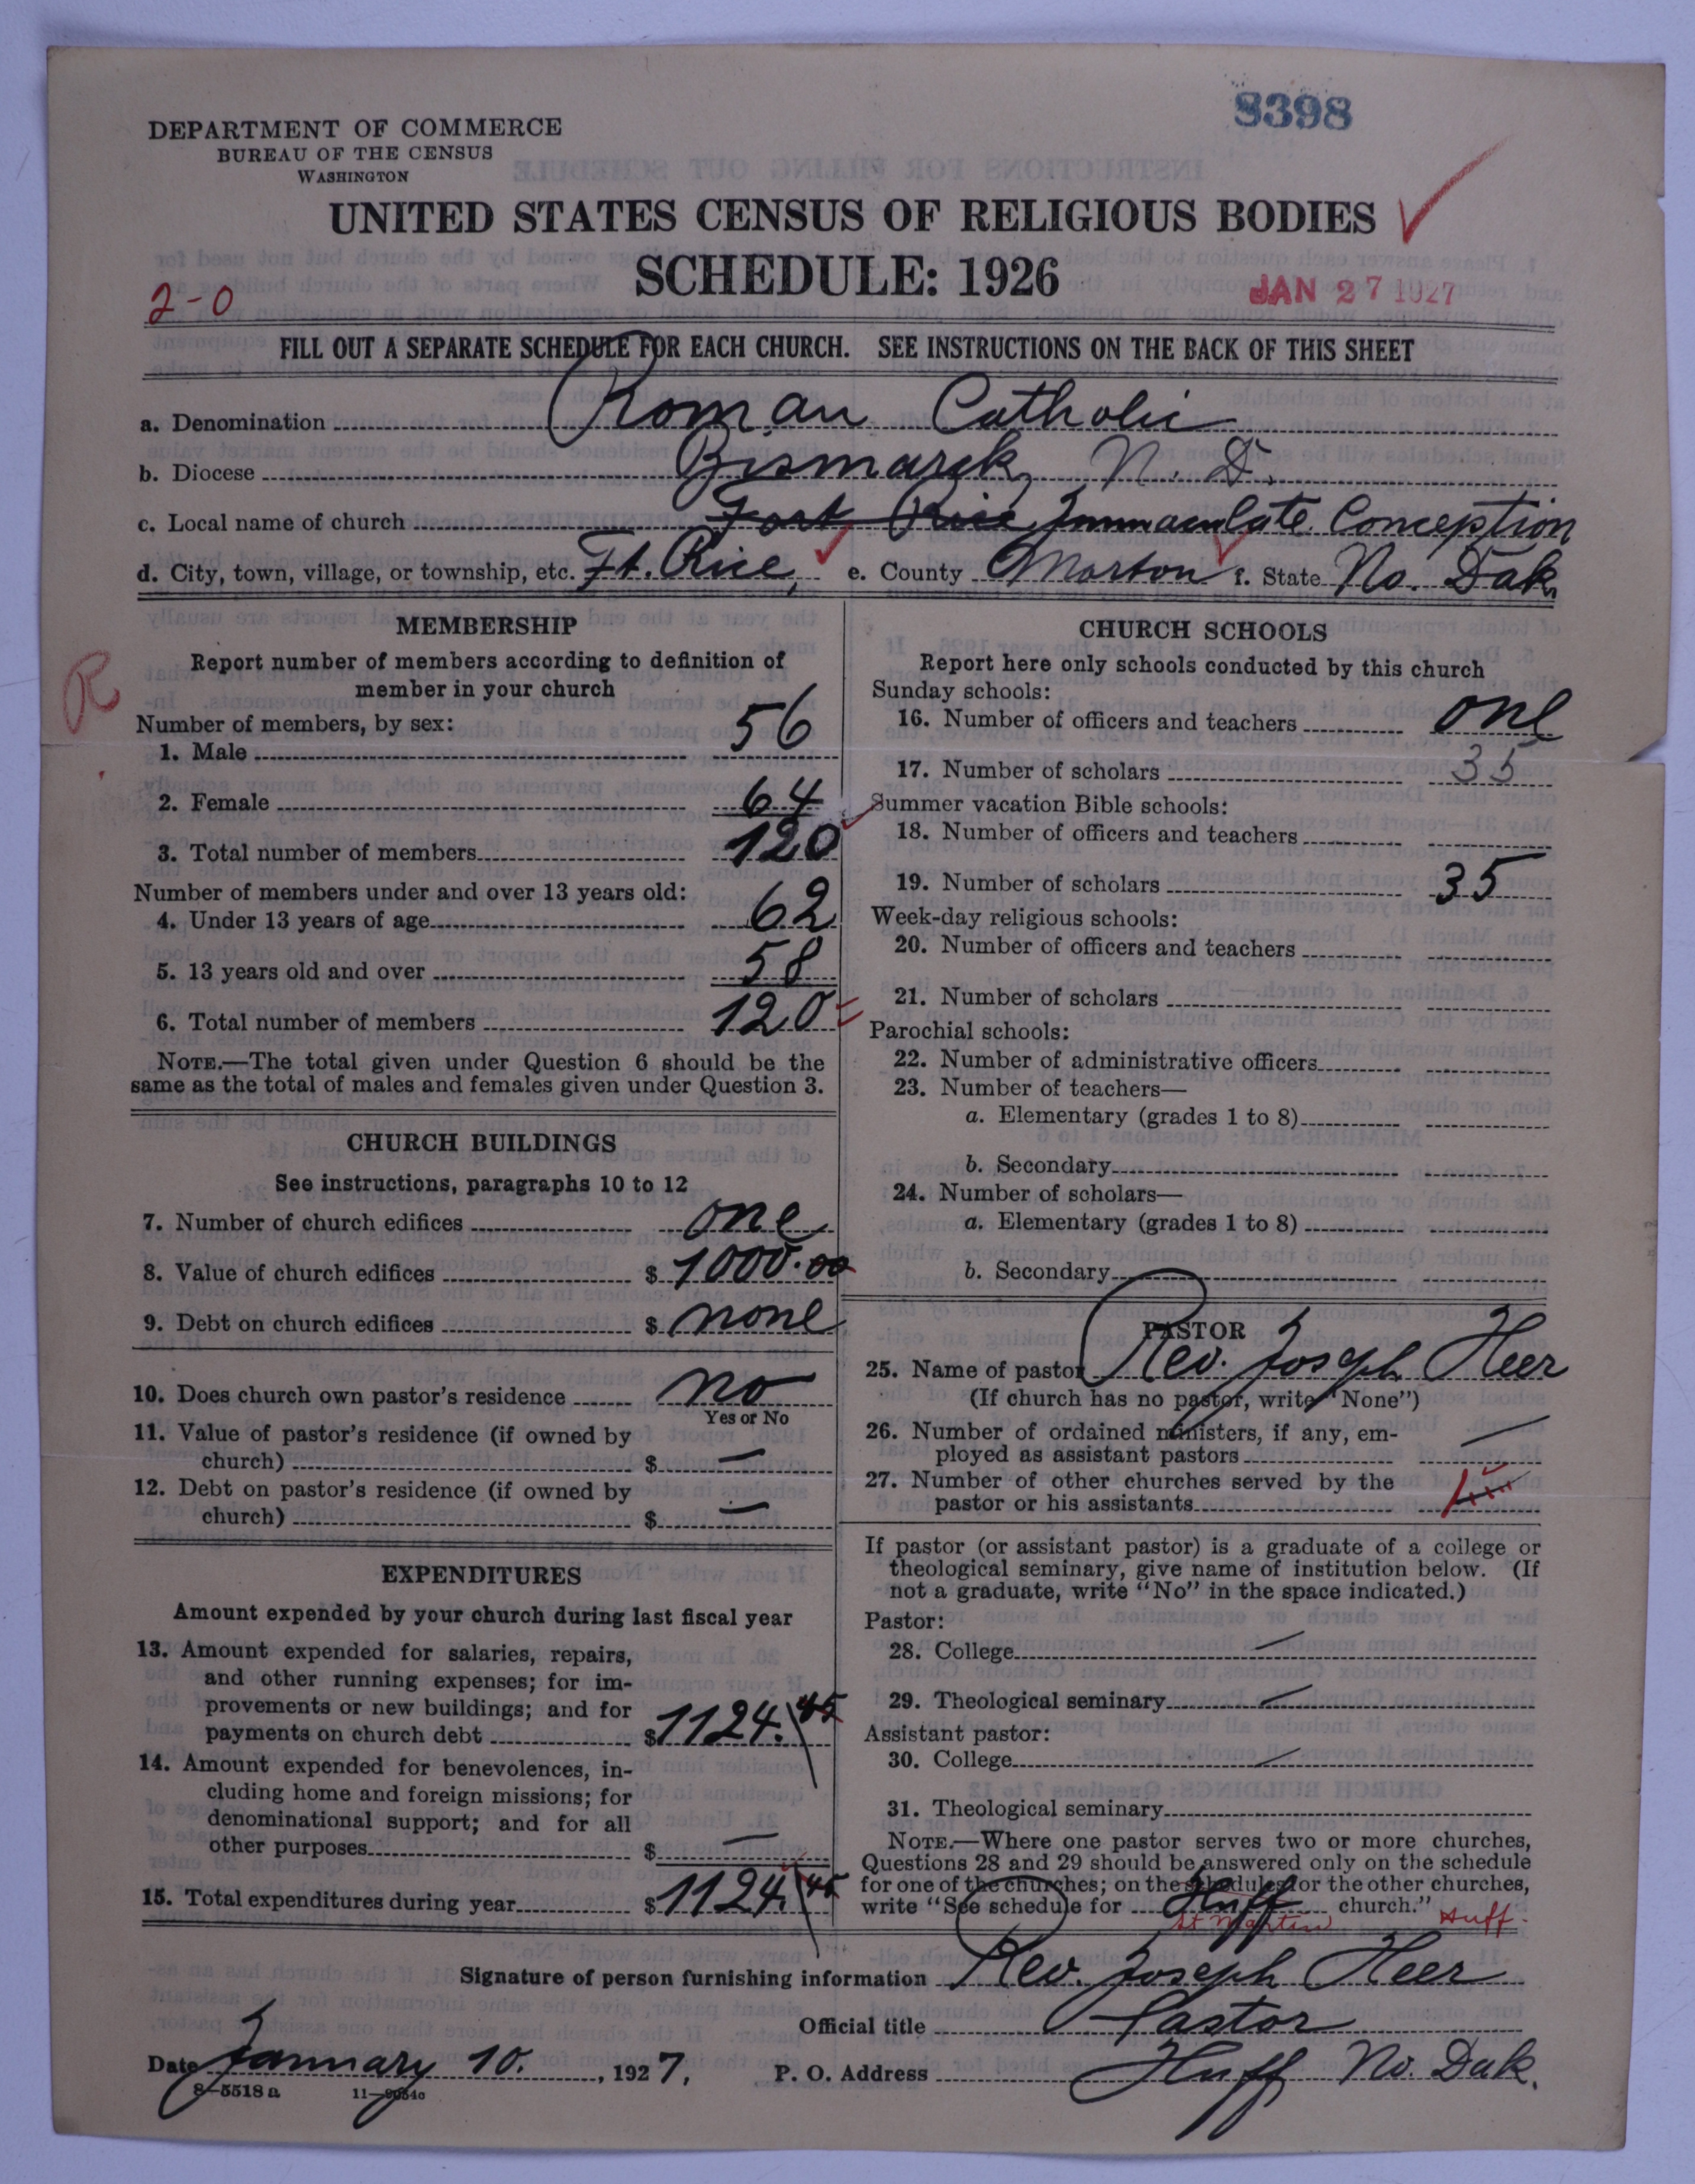 8398
DEPARTMENT OF COMMERCE
BUREAU OF THE CENSUS
WASHINGTON
UNITED STATES CENSUS OF RELIGIOUS BODIES
SCHEDULE: 1926
2-0
JAN 27 1927
FILL OUT A SEPARATE SCHEDULE FOR EACH CHURCH. SEE INSTRUCTIONS ON THE BACK OF THIS SHEET
a. Denomination Roman Catholic
b. Diocese Bismarck, N. D.
c. Local name of church Fort Rice, Immaculate Conception
d. City, town, village, or township, etc. Ft. Rice, e. County Morton f. State No. Dak.
R
MEMBERSHIP
Report number of members according to definition of
member in your church
Number of members, by sex:
1. Male 56
2. Female 64
3. Total number of members 120
Number of members under and over 13 years old:
4. Under 13 years of age 62
5. 13 years old and over 58
6. Total number of members 120
NOTE.—The total given under Question 6 should be the
same as the total of males and females given under Question 3.
CHURCH BUILDINGS
See instructions, paragraphs 10 to 12
7. Number of church edifices one
8. Value of church edifices $ 1000.00
9. Debt on church edifices $ none
10. Does church own pastor's residence no
Yes or No
11. Value of pastor's residence (if owned by
church) $ —
12. Debt on pastor's residence (if owned by
church) $ —
EXPENDITURES
Amount expended by your church during last fiscal year
13. Amount expended for salaries, repairs,
and other running expenses; for im-
provements or new buildings; and for
payments on church debt $ 1124.45
14. Amount expended for benevolences, in-
cluding home and foreign missions; for
denominational support; and for all
other purposes $ —
15. Total expenditures during year $ 1124.45
CHURCH SCHOOLS
Report here only schools conducted by this church
Sunday schools:
16. Number of officers and teachers one
17. Number of scholars 35
Summer vacation Bible schools:
18. Number of officers and teachers
19. Number of scholars 35
Week-day religious schools:
20. Number of officers and teachers
21. Number of scholars
Parochial schools:
22. Number of administrative officers
23. Number of teachers—
a. Elementary (grades 1 to 8)
b. Secondary
24. Number of scholars—
a. Elementary (grades 1 to 8)
b. Secondary
PASTOR
25. Name of pastor Rev. Joseph Heer
(If church has no pastor, write "None")
26. Number of ordained ministers, if any, em-
ployed as assistant pastors —
27. Number of other churches served by the
pastor or his assistants
If pastor (or assistant pastor) is a graduate of a college or
theological seminary, give name of institution below. (If
not a graduate, write "No" in the space indicated.)
Pastor:
28. College —
29. Theological seminary —
Assistant pastor:
30. College —
31. Theological seminary
NOTE.—Where one pastor serves two or more churches,
Questions 28 and 29 should be answered only on the schedule
for one of the churches; on the schedules for the other churches,
write "See schedule for Huff church." Huff.
St Martin
Signature of person furnishing information Rev. Joseph Heer
Official title Pastor
Date January 10., 1927, P. O. Address Huff No. Dak.
8-5518a 11-9054c